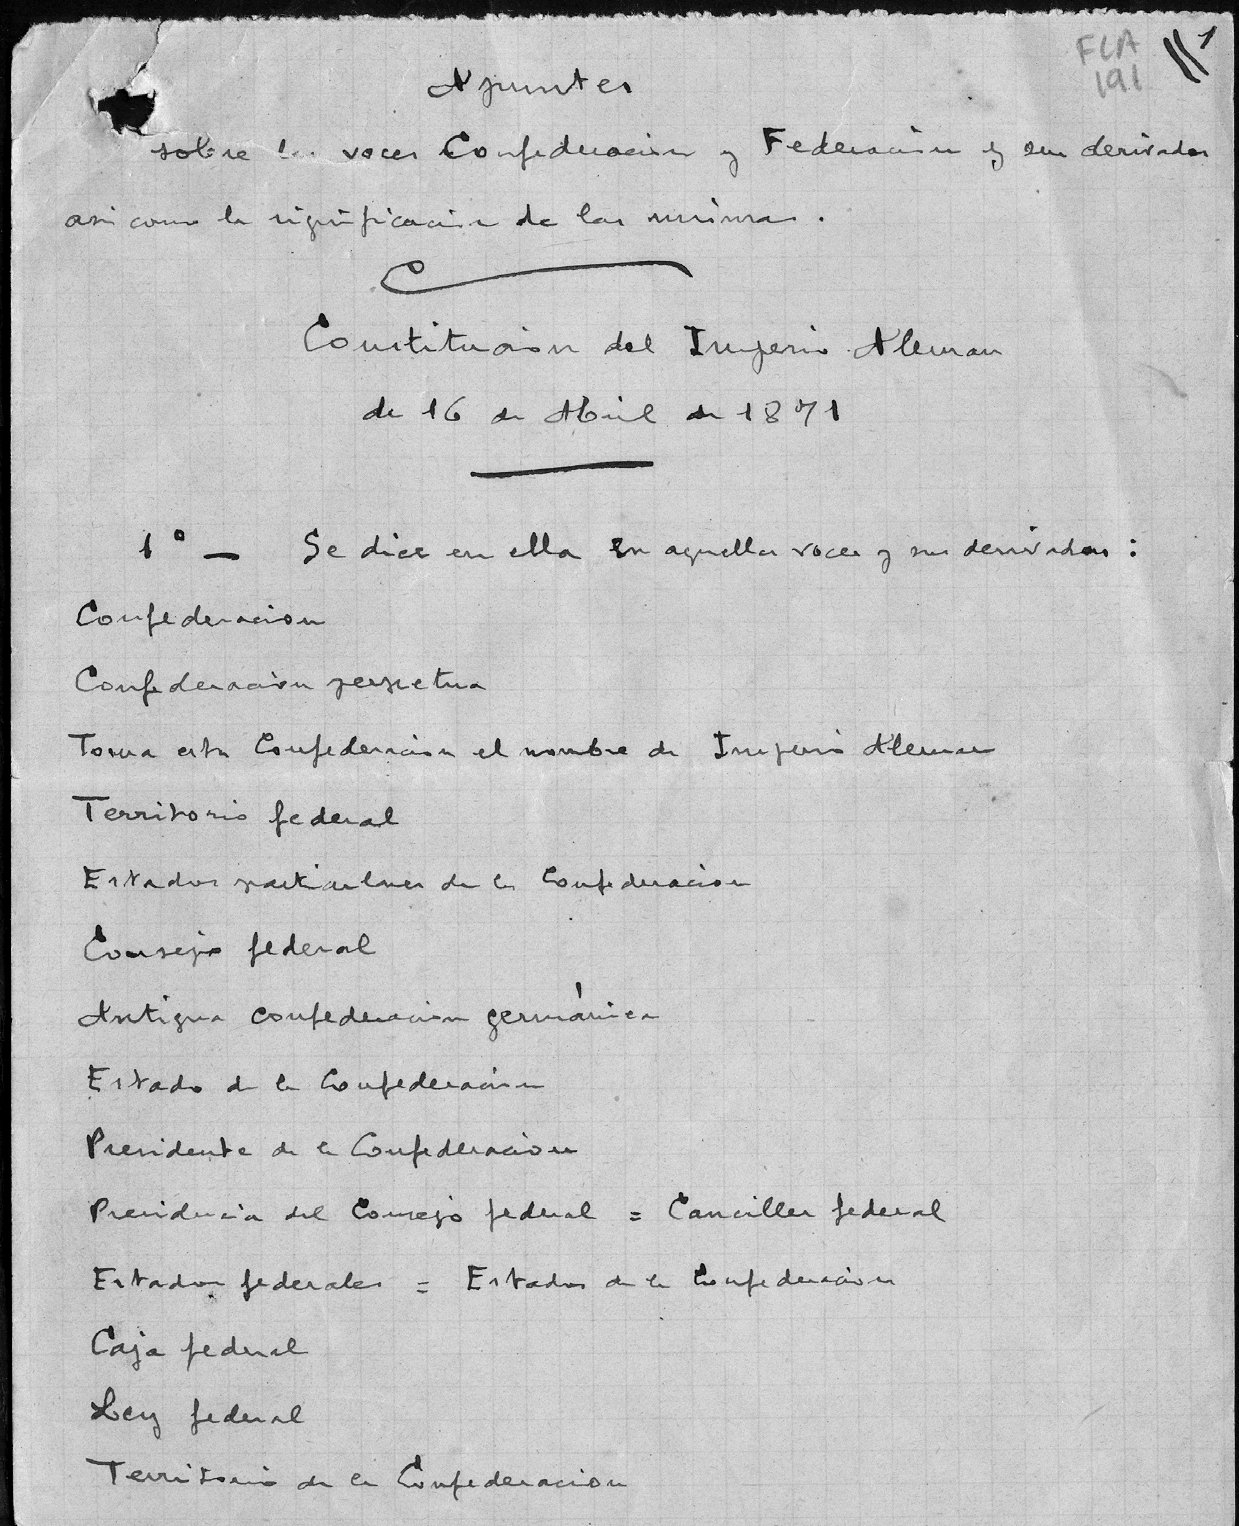 FLA
191
1
Apuntes
sobre las voces Confederacion y Federacion y sus derivadas
asi como la significacion de las mismas.
Constitucion del Imperio Aleman
de 16 de Abril de 1871
1º — Se dice en ella en aquellas voces y sus derivadas:
Confederacion
Confederacion perpetua
Toma esta Confederacion el nombre de Imperio Aleman
Territorio federal
Estados particulares de la Confederacion
Consejo federal
Antigua confederacion germánica
Estado de la Confederacion
Presidente de la Confederacion
Presidencia del Consejo federal = Canciller federal
Estados federales = Estados de la Confederacion
Caja federal
Ley federal
Territorio de la Confederacion